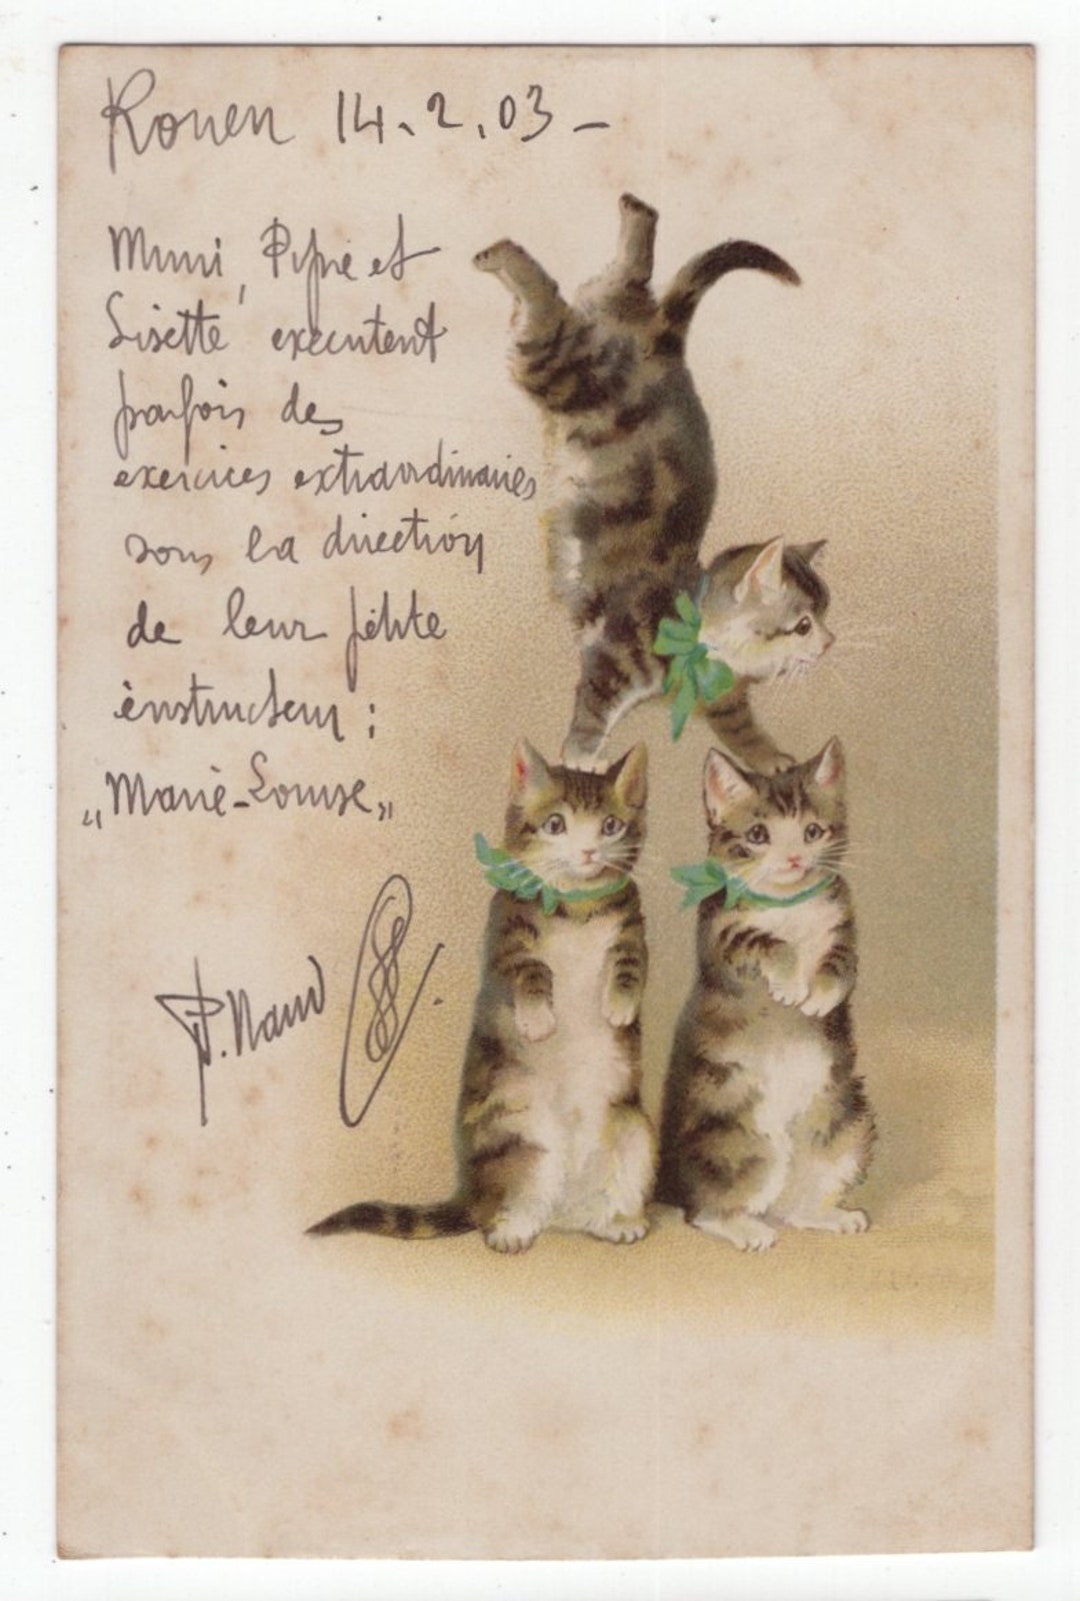 Rouen 14.2.03 -
Mimi, Pipie et
Lisette exécutent
parfois des
exercices extraordinaires
sous la direction
de leur petite
instructeur :
„Marie-Louise„
P. Naud